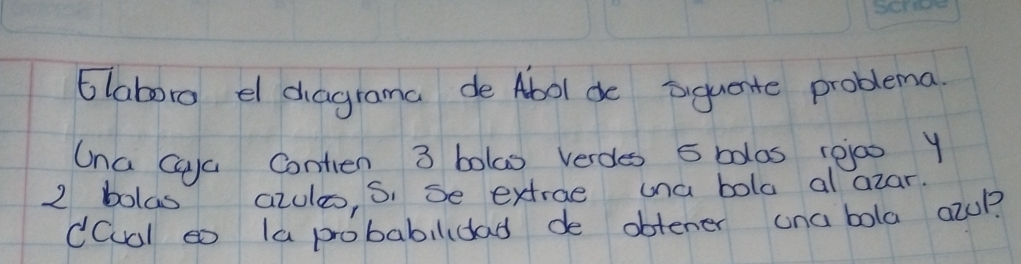 Scribe
Elabora el diagrama de Abol de siguente problema.
Una caja contien 3 bolas verdes 5 bolas rojas y
2 bolas azules, Si se extrae una bola al azar.
¿Cual es la probabilidad de obtener una bola azul?